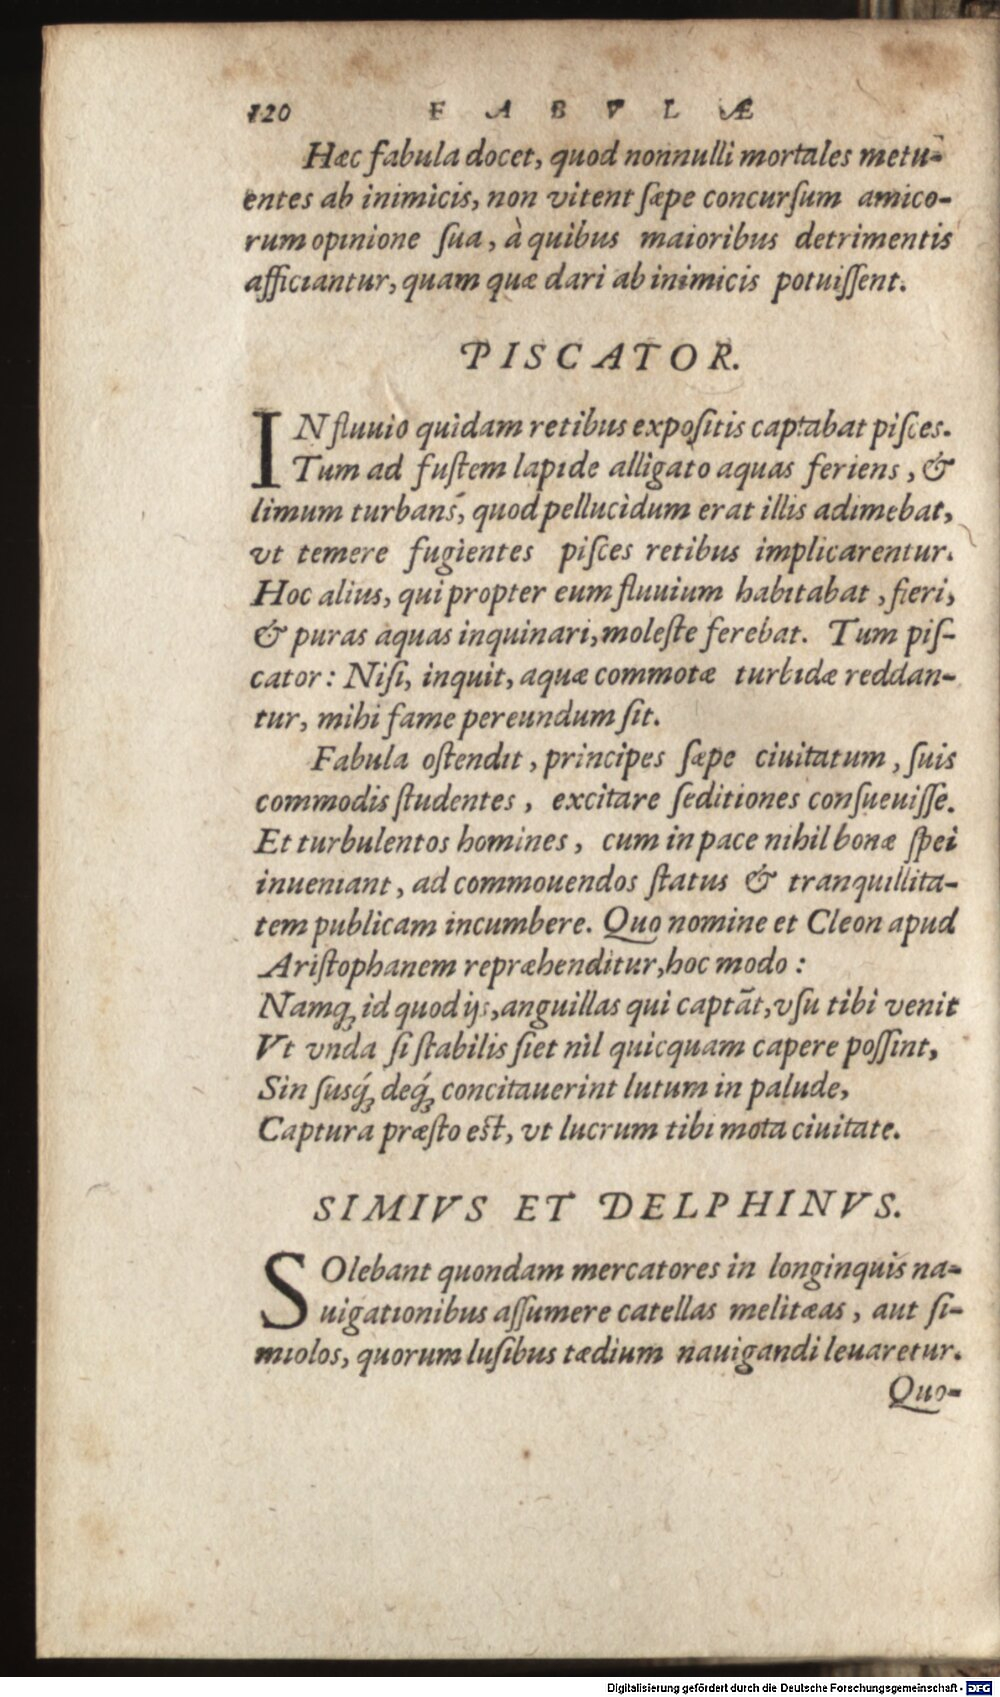 120 F A B V L Æ
Hæc fabula docet, quod nonnulli mortales metu-
entes ab inimicis, non vitent sæpe concursum amico-
rum opinione sua, à quibus maioribus detrimentis
afficiantur, quam quæ dari ab inimicis potuissent.
PISCATOR.
IN fluuio quidam retibus expositis captabat pisces.
Tum ad fustem lapide alligato aquas feriens, &
limum turbans, quod pellucidum erat illis adimebat,
vt temere fugientes pisces retibus implicarentur.
Hoc alius, qui propter eum fluuium habitabat, fieri,
& puras aquas inquinari, moleste ferebat. Tum pis-
cator: Nisi, inquit, aquæ commotæ turbidæ reddan-
tur, mihi fame pereundum sit.
Fabula ostendit, principes sæpe ciuitatum, suis
commodis studentes, excitare seditiones consueuisse.
Et turbulentos homines, cum in pace nihil bonæ spei
inueniant, ad commouendos status & tranquillita-
tem publicam incumbere. Quo nomine et Cleon apud
Aristophanem repræhenditur, hoc modo:
Namq; id quod ijs, anguillas qui captāt, vsu tibi venit
Vt vnda si stabilis siet nil quicquam capere possint,
Sin susq́; deq́; concitauerint lutum in palude,
Captura præsto est, vt lucrum tibi mota ciuitate.
SIMIVS ET DELPHINVS.
SOlebant quondam mercatores in longinquis na-
uigationibus assumere catellas melitæas, aut si-
miolos, quorum lusibus tædium nauigandi leuaretur.
Quo-
Digitalisierung gefördert durch die Deutsche Forschungsgemeinschaft - DFG